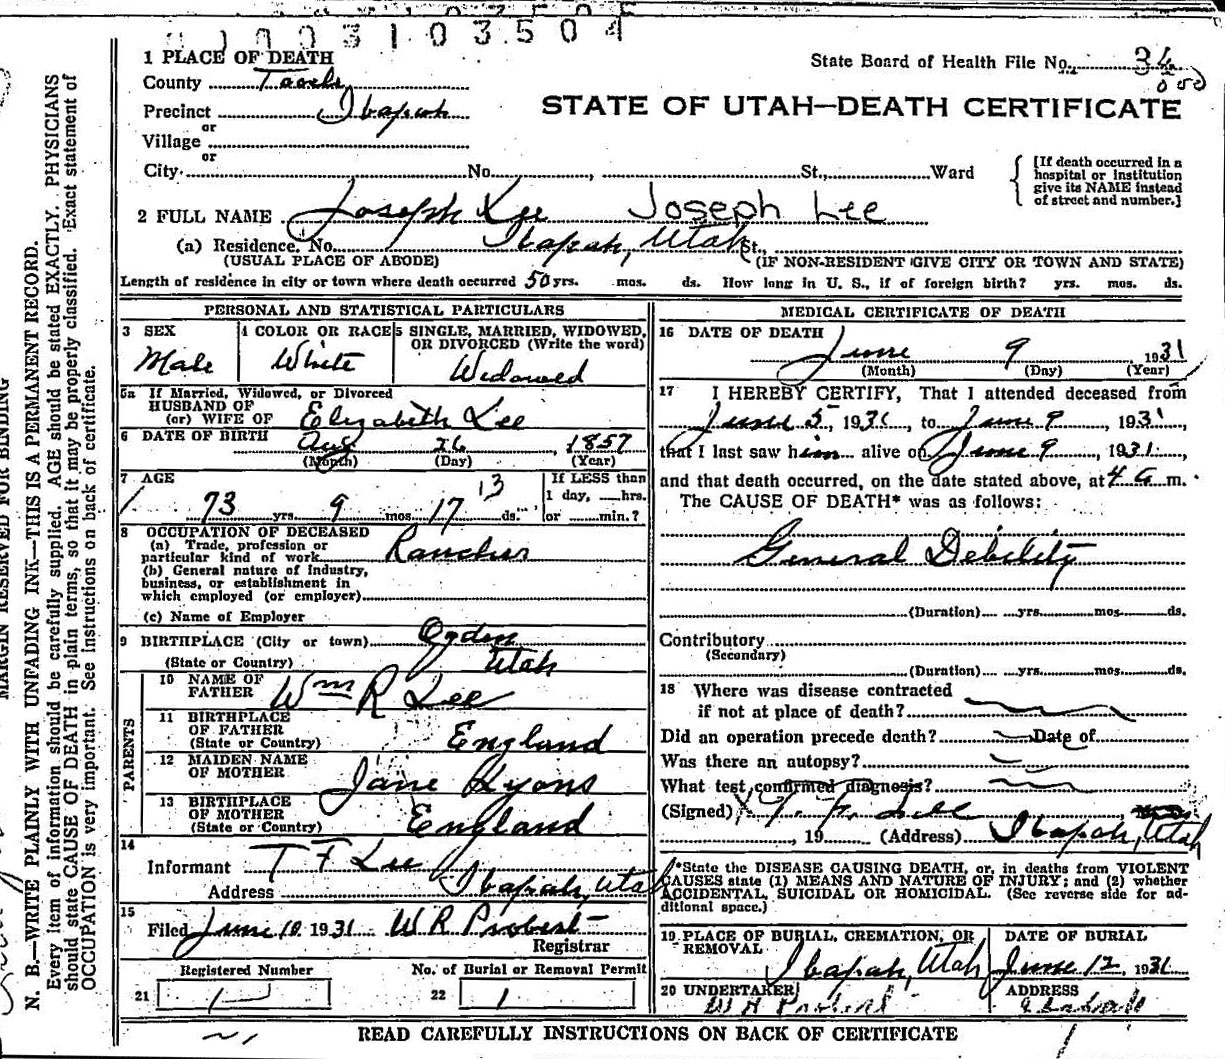 3103504
1 PLACE OF DEATH
State Board of Health File No. 34
County Tooele
Precinct Ibapah
STATE OF UTAH—DEATH CERTIFICATE
or
Village
or
City. No. , St., Ward
[If death occurred in a hospital or institution give its NAME instead of street and number.]
2 FULL NAME Joseph Lee Joseph Lee
(a) Residence. No. Ibapah, Utah St.,
(USUAL PLACE OF ABODE) (IF NON-RESIDENT GIVE CITY OR TOWN AND STATE)
Length of residence in city or town where death occurred 50 yrs. mos. ds. How long in U. S., if of foreign birth? yrs. mos. ds.
PERSONAL AND STATISTICAL PARTICULARS
3 SEX 4 COLOR OR RACE 5 SINGLE, MARRIED, WIDOWED, OR DIVORCED (Write the word)
Male White Widowed
5a If Married, Widowed, or Divorced
HUSBAND OF
(or) WIFE OF Elizabeth Lee
6 DATE OF BIRTH Aug 26, 1857
(Month) (Day) (Year)
7 AGE If LESS than
13 1 day, hrs.
73 yrs. 9 mos. 17 ds. or min.?
8 OCCUPATION OF DECEASED
(a) Trade, profession or
particular kind of work Rancher
(b) General nature of industry,
business, or establishment in
which employed (or employer)
(c) Name of Employer
9 BIRTHPLACE (City or town) Ogden
(State or Country) Utah
PARENTS
10 NAME OF
FATHER Wm R Lee
11 BIRTHPLACE
OF FATHER
(State or Country) England
12 MAIDEN NAME
OF MOTHER Jane Lyons
13 BIRTHPLACE
OF MOTHER
(State or Country) England
14
Informant T F Lee
Address Ibapah, Utah
15
Filed June 10 1931 W R Probert
Registrar
Registered Number No. of Burial or Removal Permit
21 1 22 1
MEDICAL CERTIFICATE OF DEATH
16 DATE OF DEATH
June 9 1931
(Month) (Day) (Year)
17 I HEREBY CERTIFY, That I attended deceased from
June 5, 1931, to June 9 1931,
that I last saw him alive on June 9, 1931,
and that death occurred, on the date stated above, at 4 a m.
The CAUSE OF DEATH* was as follows:
General Debility
(Duration) yrs. mos. ds.
Contributory
(Secondary)
(Duration) yrs. mos. ds.
18 Where was disease contracted
if not at place of death?
Did an operation precede death? Date of
Was there an autopsy?
What test confirmed diagnosis?
(Signed) Lee
, 19 (Address) Ibapah, Utah
*State the DISEASE CAUSING DEATH, or, in deaths from VIOLENT
CAUSES state (1) MEANS AND NATURE OF INJURY; and (2) whether
ACCIDENTAL, SUICIDAL OR HOMICIDAL. (See reverse side for ad-
ditional space.)
19 PLACE OF BURIAL, CREMATION, OR DATE OF BURIAL
REMOVAL
Ibapah, Utah June 12, 1931
20 UNDERTAKER ADDRESS
W R Probert Ibapah
READ CAREFULLY INSTRUCTIONS ON BACK OF CERTIFICATE
MARGIN RESERVED FOR BINDING
N. B.—WRITE PLAINLY WITH UNFADING INK—THIS IS A PERMANENT RECORD.
Every item of information should be carefully supplied. AGE should be stated EXACTLY. PHYSICIANS
should state CAUSE OF DEATH in plain terms, so that it may be properly classified. Exact statement of
OCCUPATION is very important. See instructions on back of certificate.